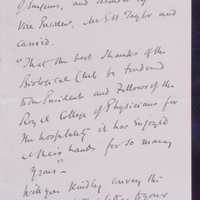 of Surgeons, and seconded by
Vice President, Mr G H Taylor and
carried.
"That the best thanks of the
Biological Club be tendered
to the President and Fellows of the
Royal College of Physicians for
the hospitality it has enjoyed
at their hands for so many
years"
Will you kindly convey the
to your